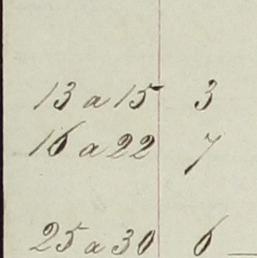 13 a 15 3
16 a 22 7
25 a 30 6